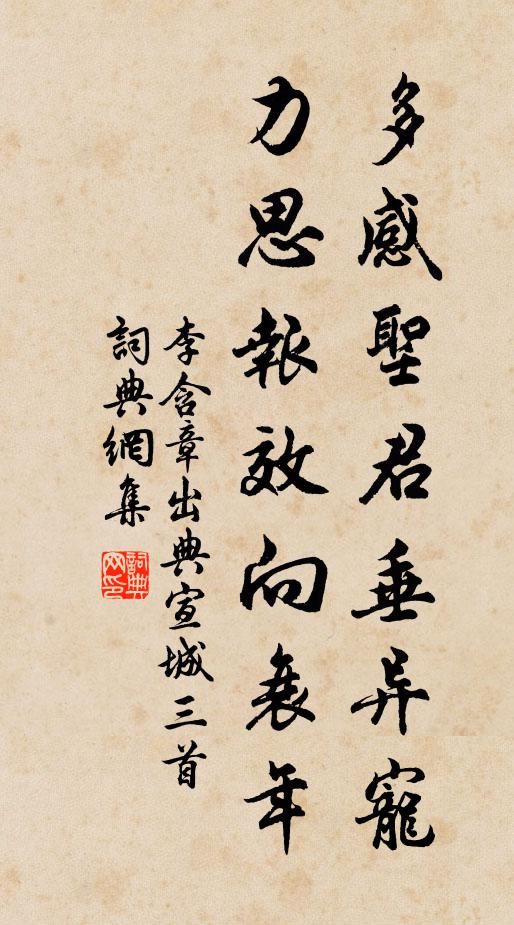 多感聖君垂异寵
力思報效向衰年
李含章出典宣城三首
詞典網集
詞典網印